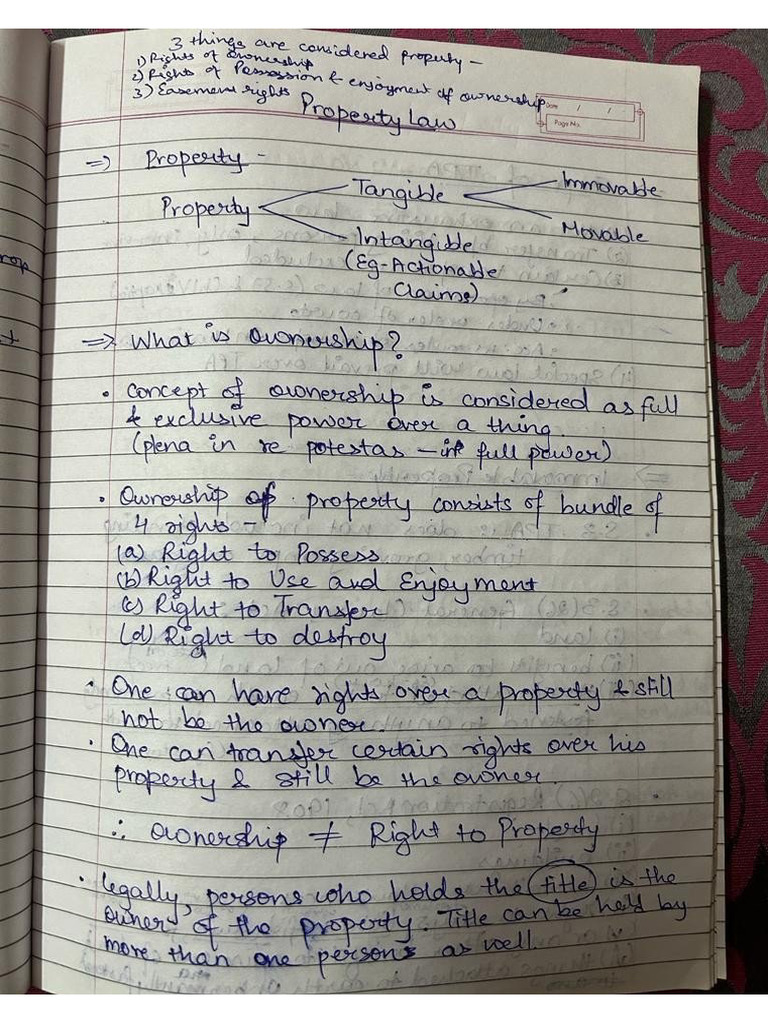 3 things are considered property -
1) Rights of ownership
2) Rights of Possession & enjoyment of ownership
3) Easement rights
Date / /
Page No.
Property Law
=> Property -
Property
Tangible
Immovable
Movable
Intangible
(Eg-Actionable
Claims)
=> What is ownership?
• Concept of ownership is considered as full
& exclusive power over a thing.
(plena in re potestas - full power)
• Ownership of property consists of bundle of
4 rights -
(a) Right to Possess
(b) Right to Use and Enjoyment
(c) Right to Transfer
(d) Right to destroy
• One can have rights over a property & still
not be the owner.
• One can transfer certain rights over his
property & still be the owner.
∴ ownership ≠ Right to Property
• legally, persons who holds the title is the
owner of the property. Title can be held by
more than one persons as well.